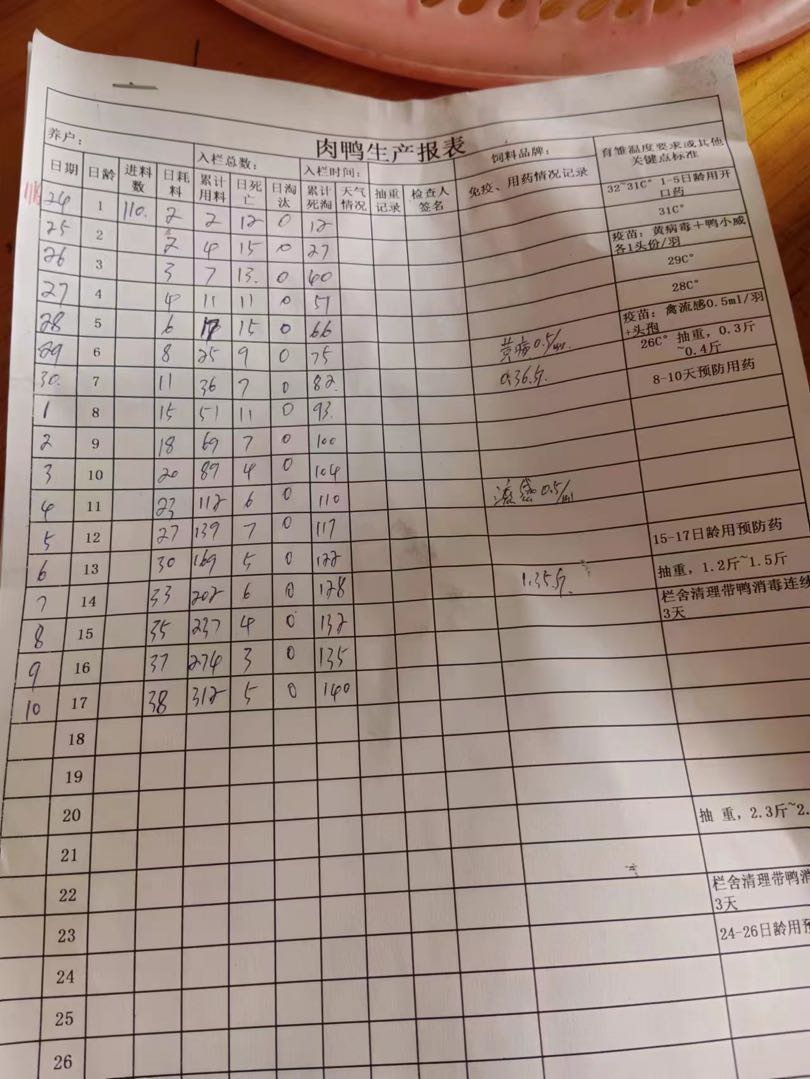 肉鸭生产报表
养户： 入栏总数： 入栏时间： 饲料品牌： 育雏温度要求或其他关键点标准
日期 日龄 进料数 日耗料 累计用料 日死亡 日淘汰 累计死淘 天气情况 抽重记录 检查人签名 免疫、用药情况记录
24 1 110. 2 2 12 0 12 32~31C° 1-5日龄用开口药
25 2 2 4 15 0 27 31C°
26 3 3 7 13. 0 40 疫苗：黄病毒+鸭小威各1头份/羽
27 4 4 11 11 0 51 29C°
28 5 6 17 15 0 66 28C°
29 6 8 25 9 0 75 黄病0.5/ml. 疫苗：禽流感0.5ml/羽+头孢
30. 7 11 36 7 0 82. 0.36斤. 26C° 抽重，0.3斤~0.4斤
1 8 15 51 11 0 93. 8-10天预防用药
2 9 18 69 7 0 100
3 10 20 89 4 0 104
4 11 23 112 6 0 110 流感0.5/ml
5 12 27 139 7 0 117
6 13 30 169 5 0 122 15-17日龄用预防药
7 14 33 202 6 0 128 1.35斤. 抽重，1.2斤~1.5斤
8 15 35 237 4 0 132 栏舍清理带鸭消毒连续3天
9 16 37 274 3 0 135
10 17 38 312 5 0 140
18
19
20
21 抽 重，2.3斤~2.
22
23 栏舍清理带鸭消
3天
24 24-26日龄用预
25
26